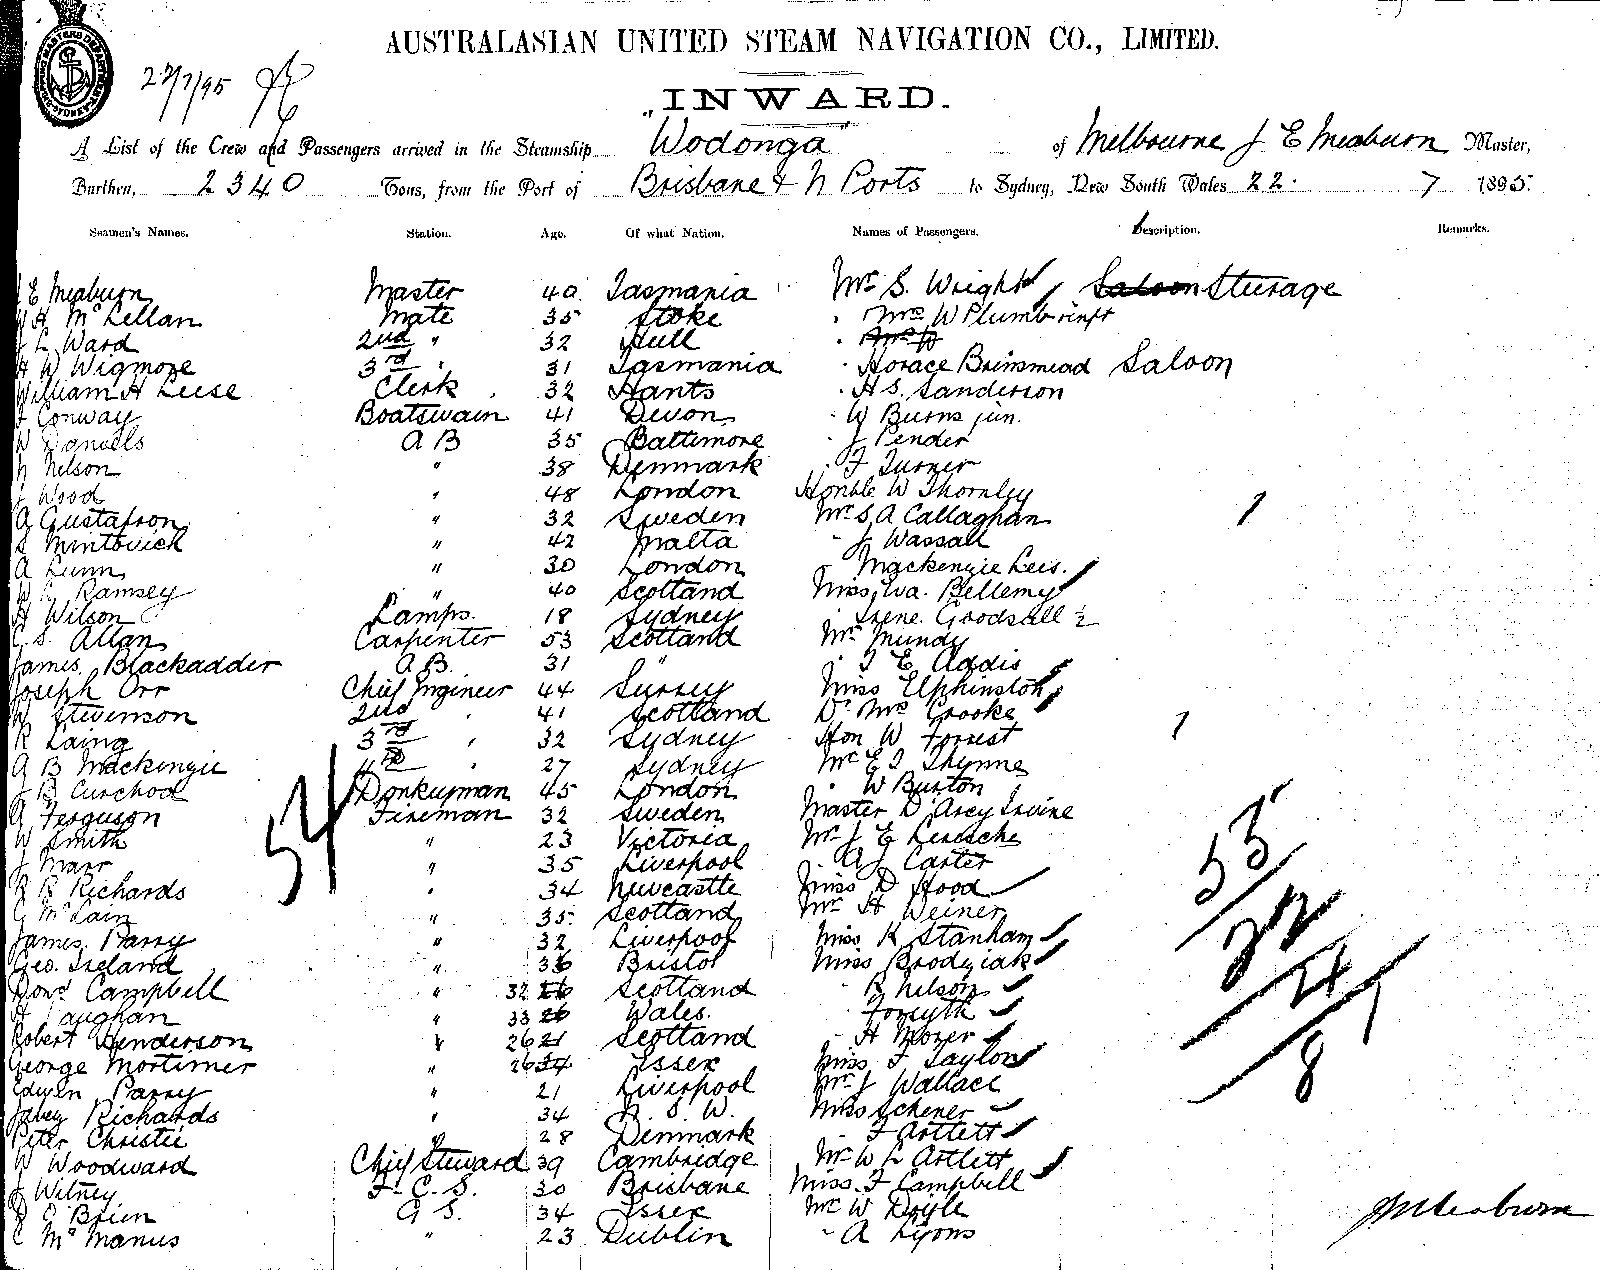 AUSTRALASIAN UNITED STEAM NAVIGATION CO., LIMITED.
22/7/95
INWARD.
A List of the Crew and Passengers arrived in the Steamship "Wodonga" of Melbourne J E Meaburn Master,
Burthen, 2340 Tons, from the Port of Brisbane & N Ports to Sydney, New South Wales 22. 7 1895.
Seamen's Names. Station. Age. Of what Nation. Names of Passengers. Description. Remarks.
J E Meaburn Master 40 Tasmania Mr S. Wright Saloon Steerage
McLellan Mate 35 Stoke Mrs W Plumb
Ward 2nd " 32 Hull Mrs W
H W Wigmore 3rd " 31 Tasmania Horace Brinsmead Saloon
William H Leese Clerk 32 Hants H S. Sanderson
Conway Boatswain 41 Devon W Burns jun.
W Daniels A B 35 Baltimore J Pender
N Nelson " 38 Denmark F Turner
J Wood " 48 London Honble W Thornley
A Gustafson " 32 Sweden Mr S A Callaghan 1
S Mintovick " 42 Malta J Wassall
A Lunn " 30 London Mackenzie Lees.
Ramsey " 40 Scotland Miss Iva. Bellemy
H Wilson Lamps. 18 Sydney Irene. Goodsall ½
C. S. Allan Carpenter 53 Scotland Mr Mundy
James. Blackadder A B. 31 " T E Addis
Joseph Orr Chief Engineer 44 Surrey Miss Elphinston
W Stevenson 2nd " 41 Scotland Dr Mrs Crooke
R Laing 3rd " 32 Sydney Hon W Forrest 1
A B Mackenzie 4th " 27 Sydney Mr E J Thynne
J B Curchod Donkeyman 45 London W Burton
A Ferguson Fireman 32 Sweden Master D'Arcy Irvine
W Smith " 23 Victoria Mr J E Leresche
J Marr " 35 Liverpool A J Carter
R R Richards " 34 Newcastle Miss D Hood
G McLain " 35 Scotland Mr H Weiner
James. Parry " 32 Liverpool Miss K Stanham
Geo. Ireland " 36 Bristol Miss Brodziak
Dond Campbell " 32 26 Scotland R Nelson
H Vaughan " 33 26 Wales. Forsyth
Robert Henderson " 26 21 Scotland H Moxer
George Mortimer " 26 34 Essex Miss F Taylor
Edwin Parry " 21 Liverpool Mr J Wallace
Richards " 34 N. S. W. Miss Schener
Peter Christie " 28 Denmark F Artlett
W Woodward Chief Steward 39 Cambridge Mr W L Artlett
J Witney F. C. S. 30 Brisbane Miss. F Campbell
O'Brien G S. 34 Essex Mr W Doyle
C McManus " 23 Dublin A Lyons
54
55
22
24
8 1
J E Meaburn